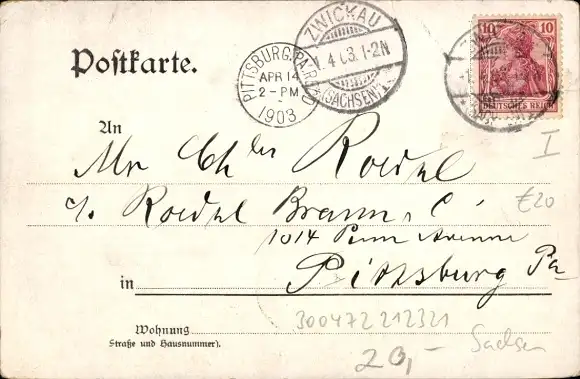 Postkarte.
ZWICKAU
1.4.03.1-2N
(SACHSEN)
PITTSBURG, PA. REC'D
APR 14
2-PM
1903
10 10
DEUTSCHES REICH
An
Mr Chles Roedel
c/o Roedel Braun & C°
1014 Penn Avenue
in Pittsburg Pa
I
€20
300472 212321
Wohnung
Straße und Hausnummer).
20,-
Sachsen